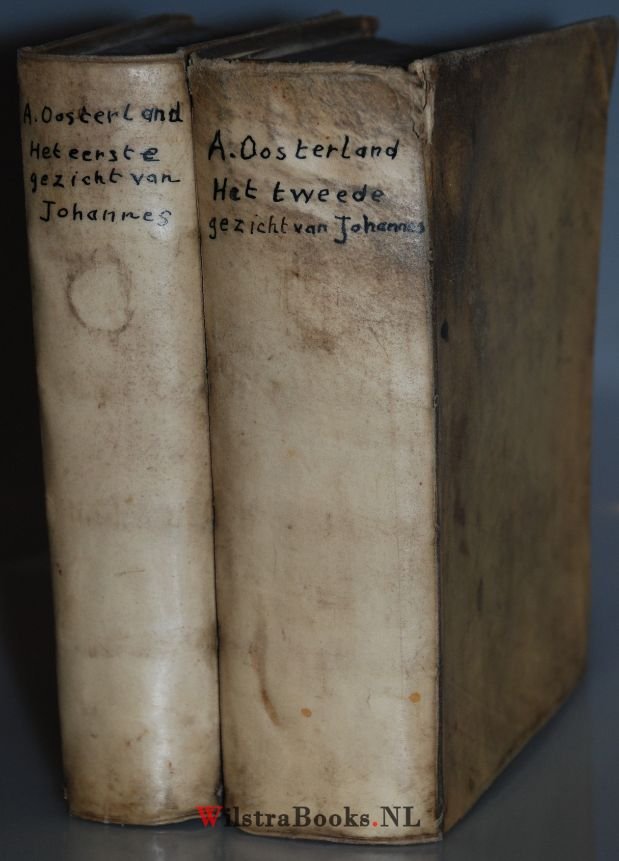 A. Oosterland
Het eerste
gezicht van
Johannes
A. Oosterland
Het tweede
gezicht van Johannes
WilstraBooks.NL